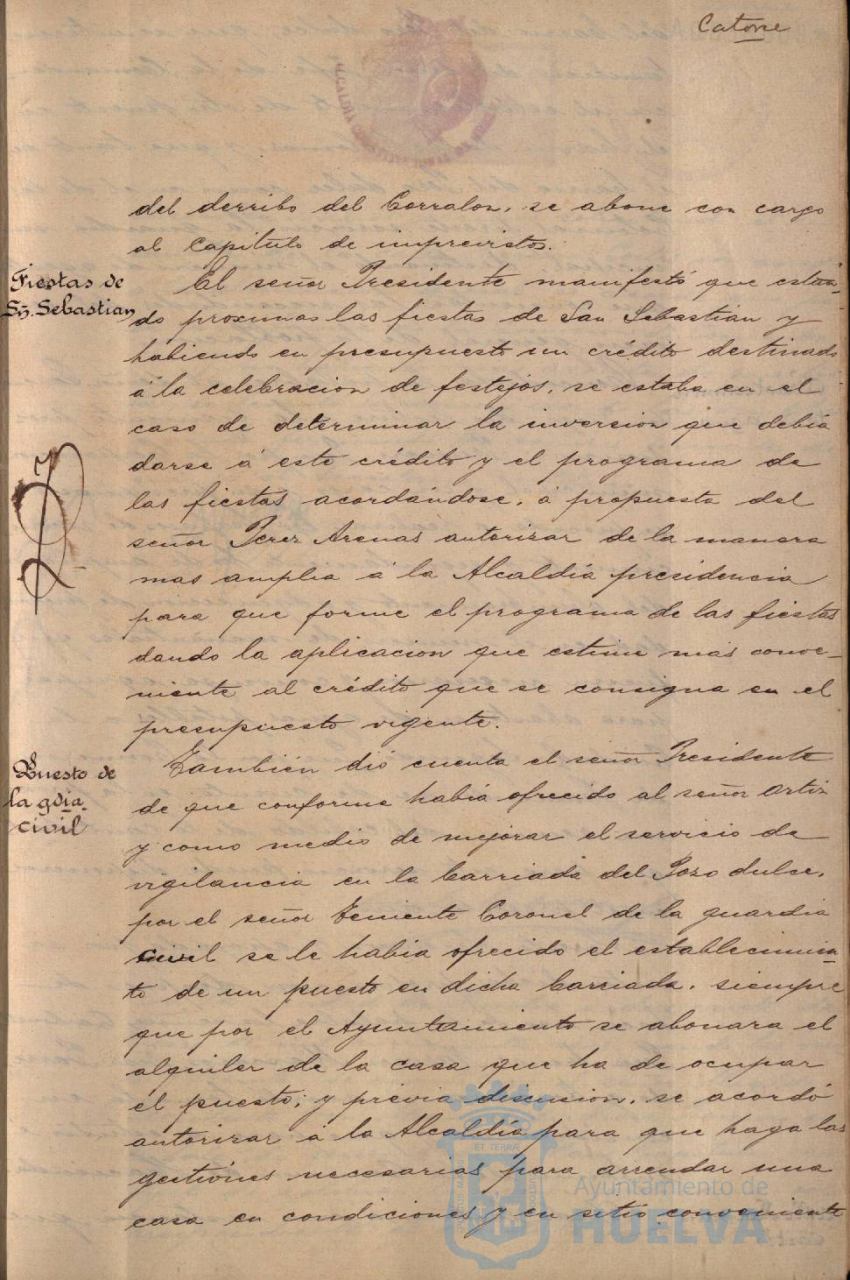 Catorce
del derribo del Corralon, se abone con cargo
al Capitulo de imprevistos.
Fiestas de
Sn. Sebastian
El señor Presidente manifestó que estan-
do proximas las fiestas de San Sebastian y
habiendo en presupuesto un crédito destinado
á la celebracion de festejos, se estaba en el
caso de determinar la inversion que debia
darse á este crédito y el programa de
las fiestas acordándose, á propuesta del
señor Perez Arenas autorizar de la manera
mas amplia á la Alcaldía presidencia
para que forme el programa de las fiestas
dando la aplicacion que estime más conve-
niente al crédito que se consigna en el
presupuesto vigente.
Puesto de
la gdia.
civil
También dió cuenta el señor Presidente
de que conforme había ofrecido al señor Ortiz
y como medio de mejorar el servicio de
vigilancia en la barriada del Pozo dulce,
por el señor Teniente Coronel de la guardia
civil se le habia ofrecido el establecimien-
to de un puesto en dicha barriada, siempre
que por el Ayuntamiento se abonara el
alquiler de la casa que ha de ocupar
el puesto; y prévia discusion, se acordó
autorizar á la Alcaldía para que haga las
gestiones necesarias para arrendar una
casa en condiciones y en sitio conveniente
Ayuntamiento de
HUELVA